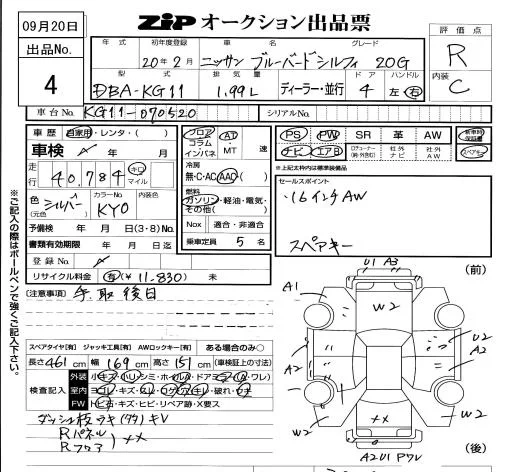 09月20日
ZiP オークション出品票
出品No.
4
評価点
R
内装
C
年式 初年度登録 車名 グレード
20年2月 ニッサン ブルーバードシルフィ 20G
型式 排気量 ディーラー・並行 ドア ハンドル
DBA-KG11 1.99L 4 左 右
車台No. KG11-070520 シリアルNo.
車歴 自家用・レンタ・( )
車検 年 月
走行 40,784 キロ マイル
色 (元色) シルバー カラーNo. KY0 内装色
予備検 年 月 日(3・8)No.
書類有効期限 年 月 日迄
登録No.
リサイクル料金 有(¥ 11,830) 未
フロア コラム インパネ AT MT 速
冷房
無・C・AC・AAC( )
燃料
ガソリン・軽油・電気・その他( )
Nox 適合・非適合
乗車定員 5 名
PS PW SR 革 AW
ナビ エアB
新車時保証書
スペアキー
※上記太枠内は標準装備品
セールスポイント
・16インチAW
スペアキー
[注意事項] 手取後日
※ご記入の際はボールペンで強くご記入下さい。
スペアタイヤ[有] ジャッキ工具[有] AWロックキー[有] ある場合のみ○
長さ 461 cm 幅 169 cm 高さ 151 cm (車検証上の寸法)
検査記入
外装
室内
FW トビ石・キズ・ヒビ・リペア跡・X要ス
Rパネル
Rフロア
XX
(前)
U1 A3
A1
W2
U2
A2
A2
W2
XX
W2
A2U1
(後)